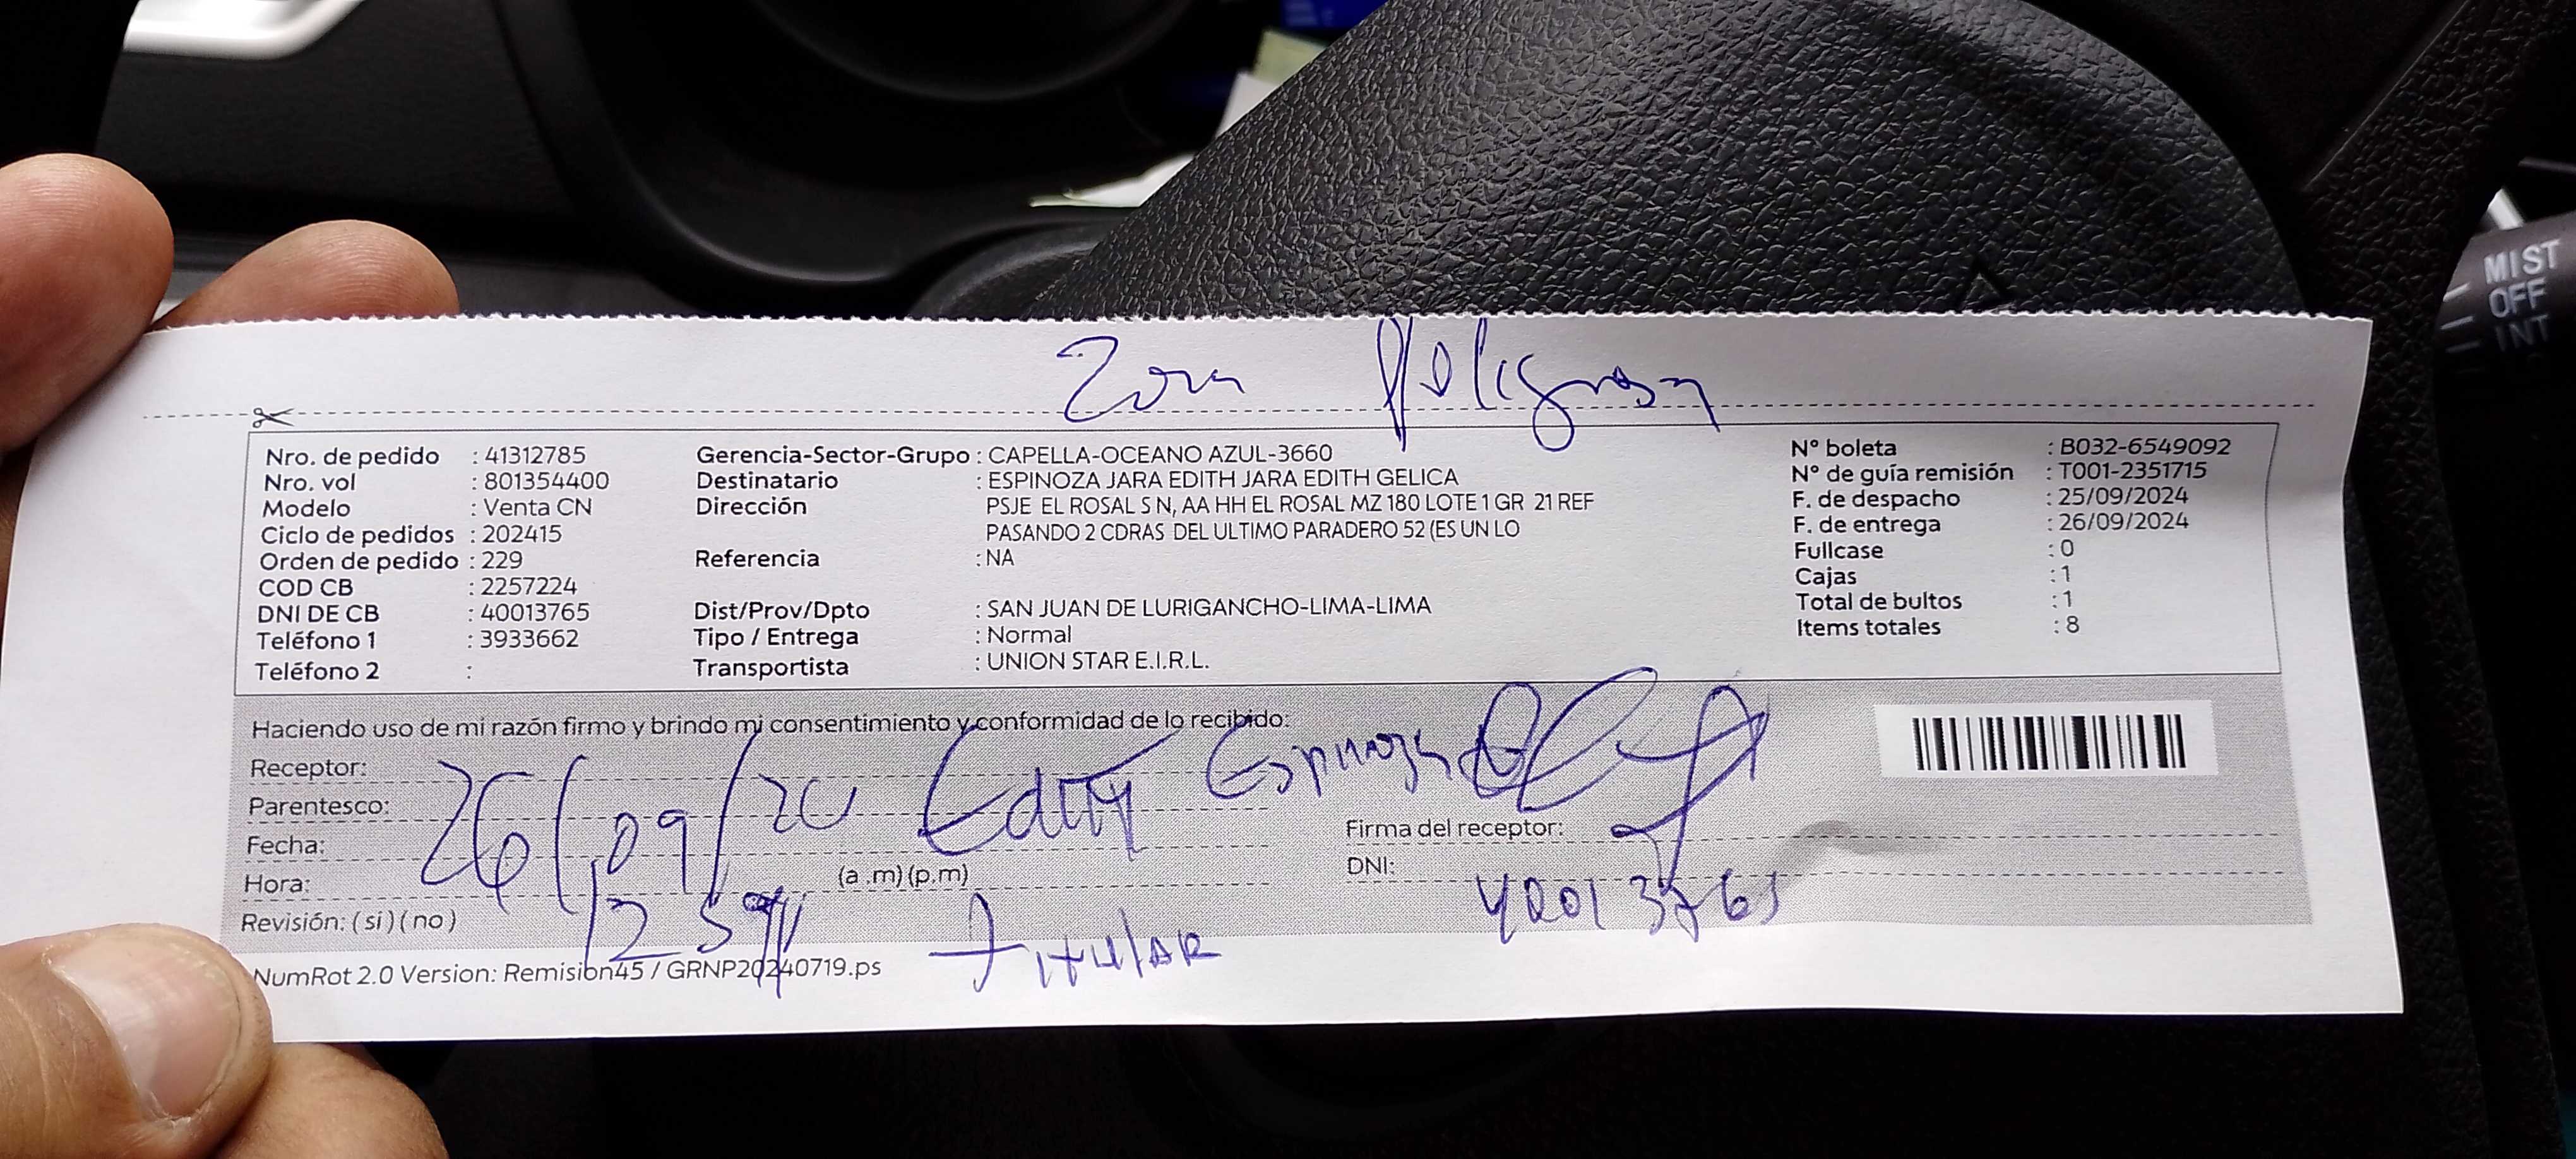 Zona Peligrosa
Nro. de pedido : 41312785
Nro. vol : 801354400
Modelo : Venta CN
Ciclo de pedidos : 202415
Orden de pedido : 229
COD CB : 2257224
DNI DE CB : 40013765
Teléfono 1 : 3933662
Teléfono 2 :
Gerencia-Sector-Grupo : CAPELLA-OCEANO AZUL-3660
Destinatario : ESPINOZA JARA EDITH JARA EDITH GELICA
Dirección PSJE EL ROSAL S N, AA HH EL ROSAL MZ 180 LOTE 1 GR 21 REF
PASANDO 2 CDRAS DEL ULTIMO PARADERO 52 (ES UN LO
Referencia : NA
Dist/Prov/Dpto : SAN JUAN DE LURIGANCHO-LIMA-LIMA
Tipo / Entrega : Normal
Transportista : UNION STAR E.I.R.L.
N° boleta : B032-6549092
N° de guía remisión : T001-2351715
F. de despacho : 25/09/2024
F. de entrega : 26/09/2024
Fullcase : 0
Cajas : 1
Total de bultos : 1
Items totales : 8
Haciendo uso de mi razón firmo y brindo mi consentimiento y conformidad de lo recibido:
Receptor:
Parentesco:
Fecha:
Hora: (a .m) (p.m)
Revisión: ( si ) ( no )
26/09/20 Edith Espinoza
Titular
Firma del receptor:
DNI:
40013765
NumRot 2.0 Version: Remision45 / GRNP20240719.ps
MIST
OFF
INT